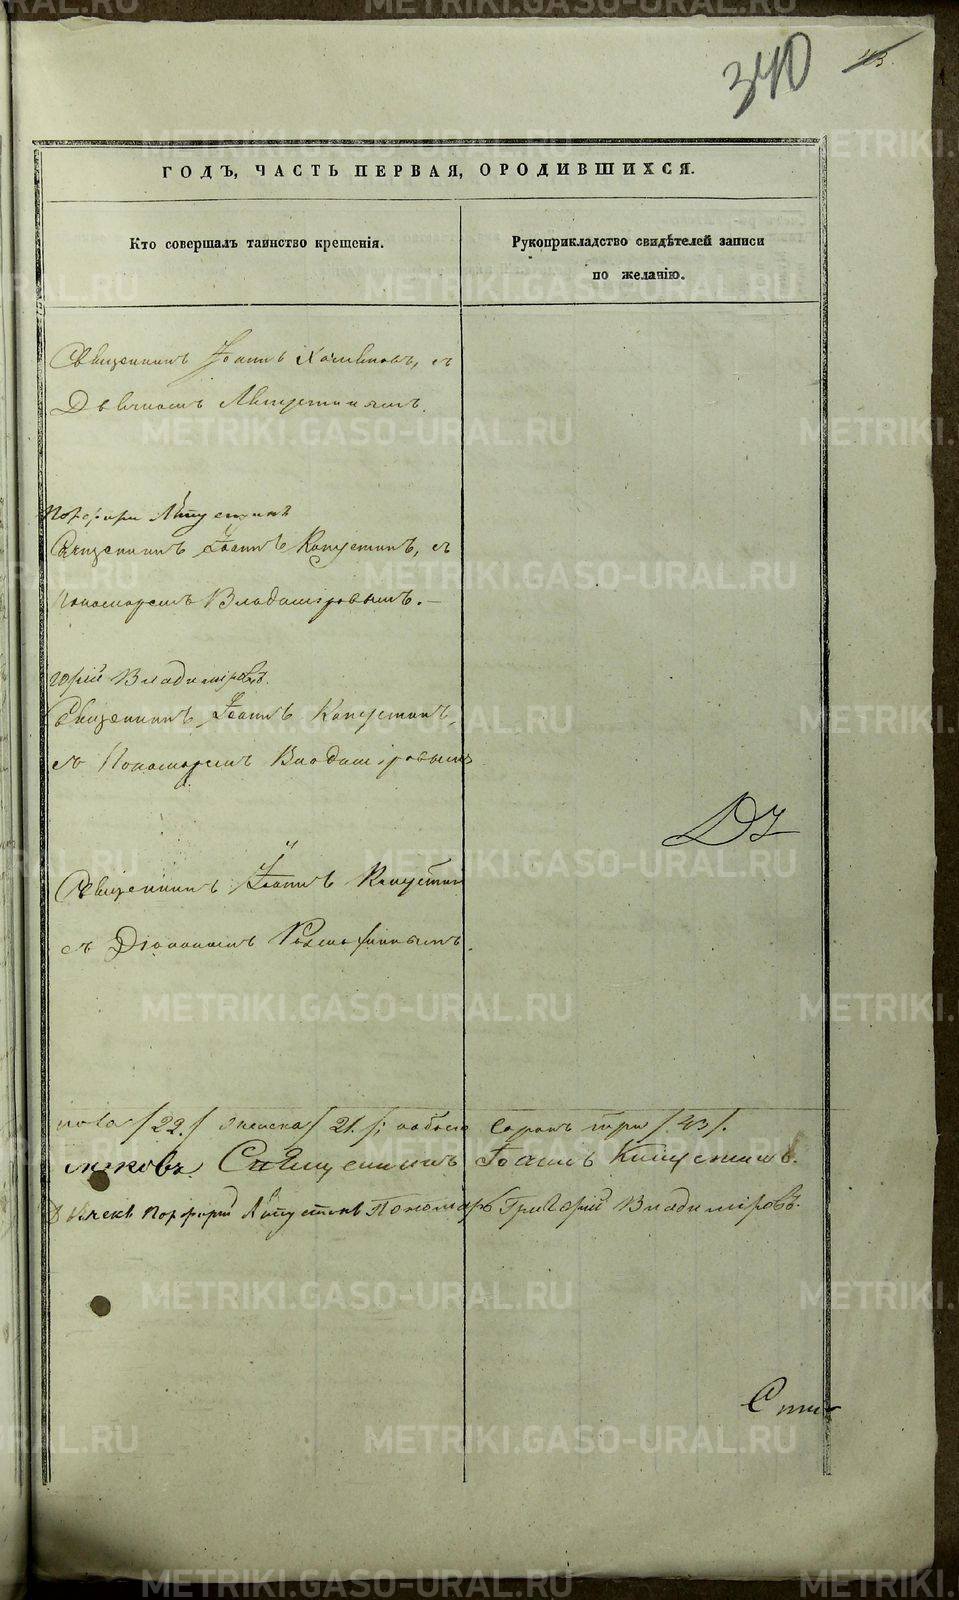 340
43.
ГОДЪ, ЧАСТЬ ПЕРВАЯ, ОРОДИВШИХСЯ.
Кто совершалъ таинство крещенія.
Рукоприкладство свидѣтелей записи
по желанію.
Священникъ Іоаннъ съ
Дьячкомъ
Порфири
Священникъ Іоаннъ Капустинъ, съ
Пономаремъ Владиміровымъ.
горій Владиміровъ.
Священникъ Іоаннъ Капустинъ,
съ Пономаремъ Владиміровымъ
Священникъ Іоаннъ Капустин
съ Діакономъ
пола /22./ женска /21./; обоего Сорокъ три /43/.
Священникъ Іоаннъ Капустинъ.
Дьячекъ Порфирій Пономарь Григорій Владиміровъ.
METRIKI.GASO-URAL.RU